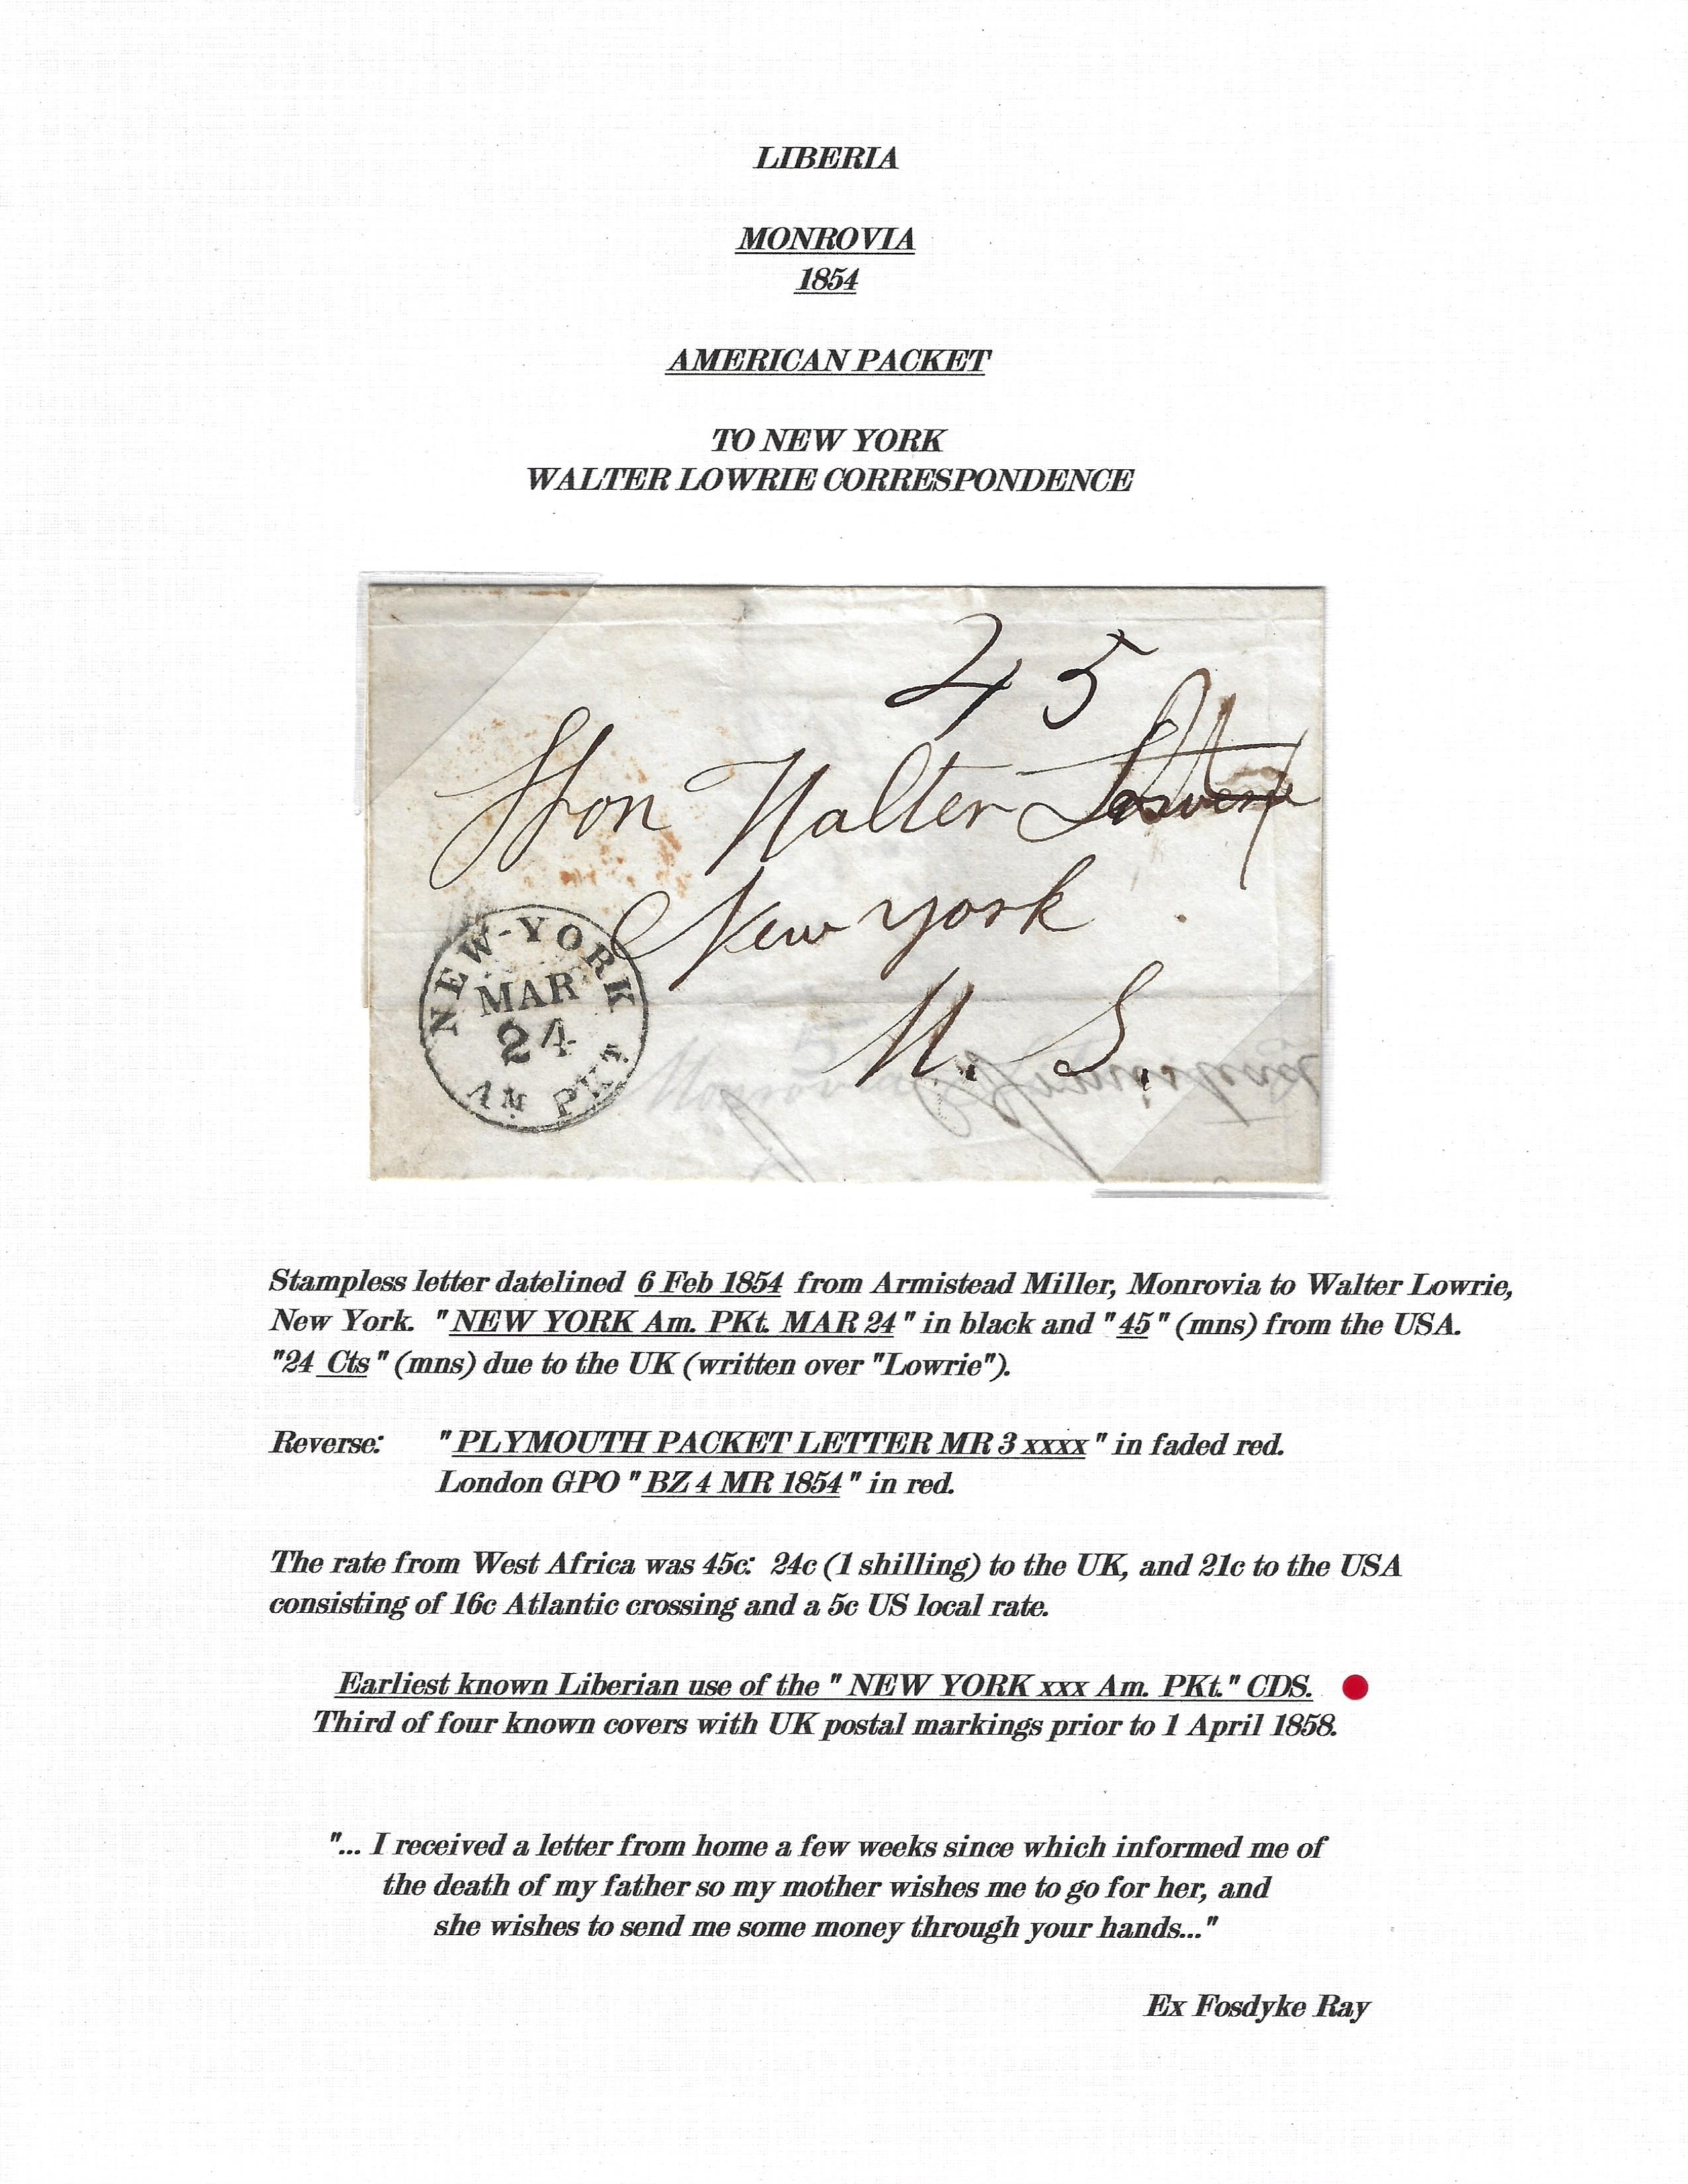 LIBERIA
MONROVIA
1854
AMERICAN PACKET
TO NEW YORK
WALTER LOWRIE CORRESPONDENCE
45
Hon Walter Lowrie
New York
U. S.
NEW-YORK
MAR
24
AM PKT
Monrovia
Stampless letter datelined 6 Feb 1854 from Armistead Miller, Monrovia to Walter Lowrie,
New York. "NEW YORK Am. PKt. MAR 24" in black and "45" (mns) from the USA.
"24 Cts" (mns) due to the UK (written over "Lowrie").
Reverse: "PLYMOUTH PACKET LETTER MR 3 xxxx" in faded red.
London GPO "BZ 4 MR 1854" in red.
The rate from West Africa was 45c: 24c (1 shilling) to the UK, and 21c to the USA
consisting of 16c Atlantic crossing and a 5c US local rate.
Earliest known Liberian use of the "NEW YORK xxx Am. PKt." CDS.
Third of four known covers with UK postal markings prior to 1 April 1858.
"... I received a letter from home a few weeks since which informed me of
the death of my father so my mother wishes me to go for her, and
she wishes to send me some money through your hands..."
Ex Fosdyke Ray